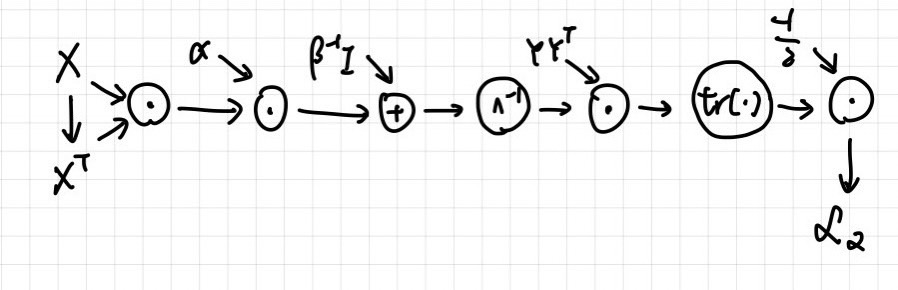 X
X^T
·
α
·
β^{-1}I
+
∧^{-1}
YY^T
·
tr(·)
-1/2
·
ℒ_2